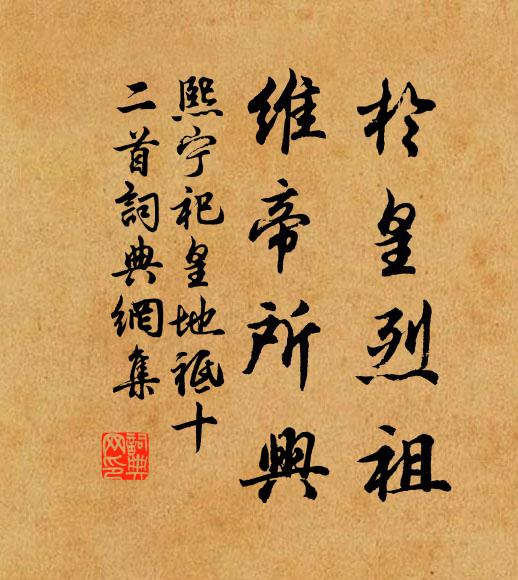 於皇烈祖
維帝所興
熙宁祀皇地祗十
二首詞典網集
詞典网印